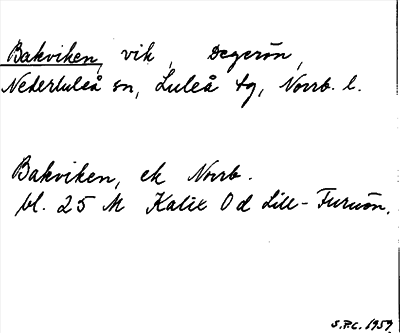 Bakviken, vik, Degerön,
Nederluleå sn, Luleå tg, Norrb. l.
Bakviken, ek Norrb.
bl. 25 M Kalix Od Lill-Furuön.
S.P.C. 1959.